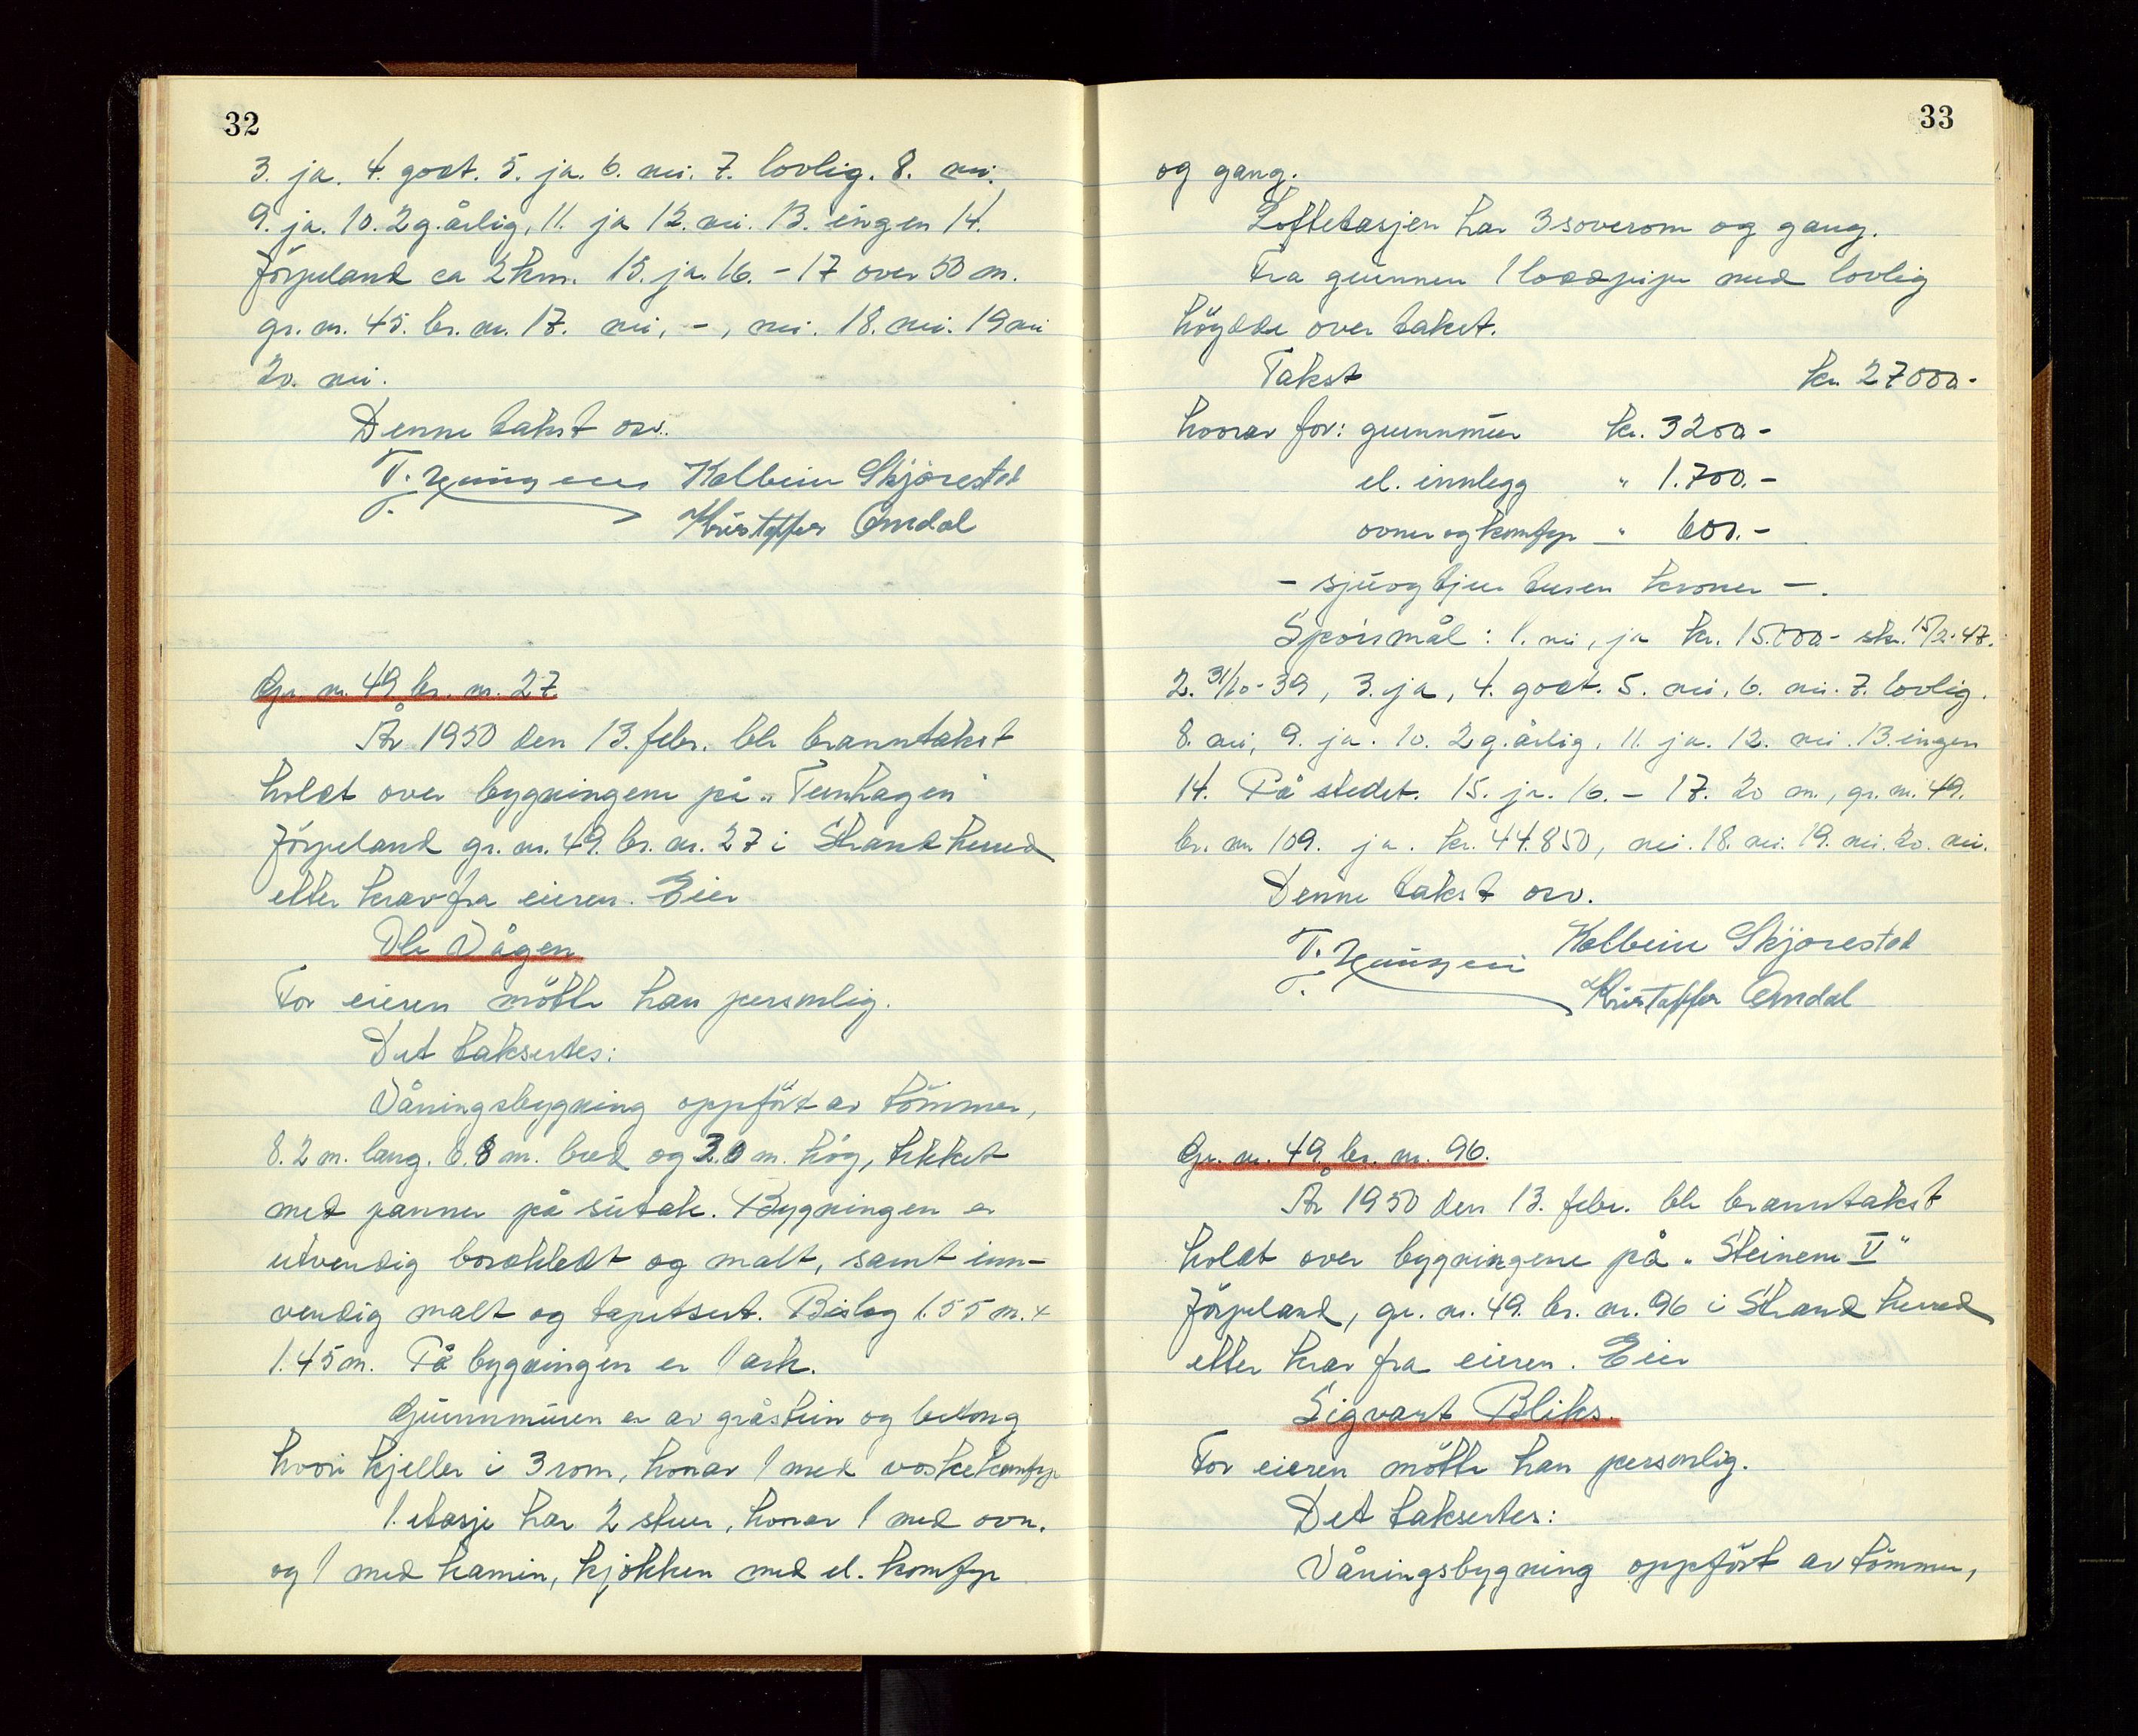 32
3. ja. 4. godt. 5. ja. 6. nei. 7. lovlig. 8. nei.
9. ja. 10. 2 g. årlig, 11. ja 12. nei. 13. ingen 14.
Jörpeland ca 2 km. 15. ja. 16. - 17 over 50 m.
gr. nr. 45. br. nr. 17. nei, -, nei. 18. nei. 19 nei
20. nei.
Denne takst osv.
Kolbein Skjørestad
Kristoffer Omdal
Gr. nr. 49 br. nr. 27
År 1950 den 13. febr. ble branntakst
holdt over bygningene på "Tunhagen"
Jörpeland gr. nr. 49. br. nr. 27 i Strand herred
etter krav fra eieren. Eier
Ole Vågen
For eieren mötte han personlig.
Det taksertes:
Våningsbygning oppfört av tömmer,
8.2 m. lang. 6.8 m. bred og 3.0 m. hög, tekket
med panner på sutak. Bygningen er
utvendig bordkledt og malt, samt inn-
vendig malt og tapetsert. Bislag 1.55 m. x
1.45 m. På bygningen er 1 ark.
Grunnmuren er av gråstein og betong
hvori kjeller i 3 rom, hvorav 1 med vaskekomfyr
1. etasje har 2 stuer, hvorav 1 med ovn.
og 1 med kamin, kjökken med el. komfyr
33
og gang.
Loftetasjen har 3 soverom og gang.
Fra grunnen 1 loddpipe med lovlig
höydde over taket.
Takst kr. 27000.-
hvorav for: grunnmur kr. 3200.-
el. innlegg " 1.700.-
ovner og komfyr " 600.-
- sjuogtjue tusen kroner -.
Spörsmål: 1. nei, ja kr. 15.000.- skr. 15/2-47.
2. 31/10-39, 3. ja, 4. godt. 5. nei. 6. nei. 7. lovlig.
8. nei, 9. ja. 10. 2 g. årlig. 11. ja. 12. nei. 13. ingen
14. På stedet. 15. ja. 16. - 17. 20 m., gr. nr. 49.
br. nr. 109. ja. kr. 44.850, nei. 18. nei. 19. nei. 20. nei.
Denne takst osv.
Kolbein Skjørestad
Kristoffer Omdal
Gr. nr. 49. br. nr. 96.
År 1950 den 13. febr. ble branntakst
holdt over bygningene på "Steinene V"
Jörpeland, gr. nr. 49. br. nr. 96 i Strand herred
etter krav fra eieren. Eier
Sigvart Bliks.
For eieren mötte han personlig.
Det taksertes:
Våningsbygning oppfört av tömmer,